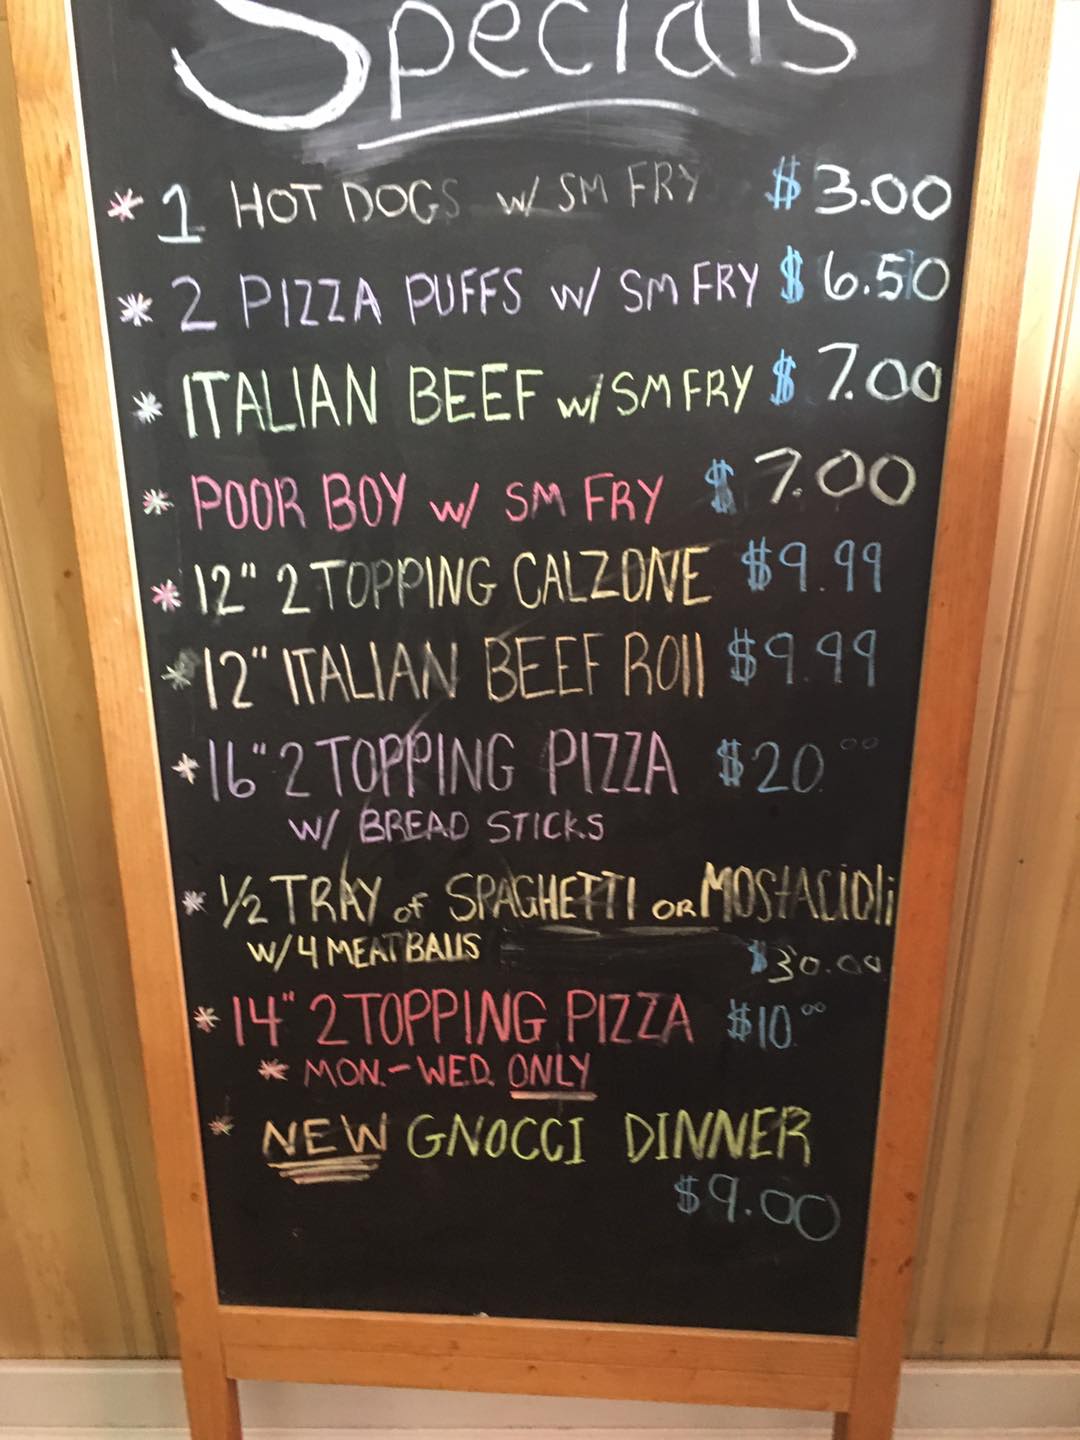 Specials
* 1 HOT DOGS w/ SM FRY $3.00
* 2 PIZZA PUFFS w/ SM FRY $6.50
* ITALIAN BEEF w/ SM FRY $7.00
* POOR BOY w/ SM FRY $7.00
* 12" 2 TOPPING CALZONE $9.99
* 12" ITALIAN BEEF ROll $9.99
* 16" 2 TOPPING PIZZA $20.00
w/ BREAD STICKS
* 1/2 TRAY of SPAGHETTI OR MOSTACIOli
w/ 4 MEATBALLS $30.00
* 14" 2 TOPPING PIZZA $10.00
* MON.-WED. ONLY
* NEW GNOCCI DINNER
$9.00